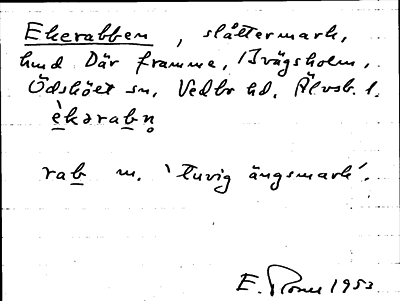 Ekerabben, slåttermark,
hmd Där framme, Brägsholm,
Ödskölt sn, Vedbo hd, Älvsb. l.
èkərabn̥
rab m. 'tuvig ängsmark'.
E. 1953